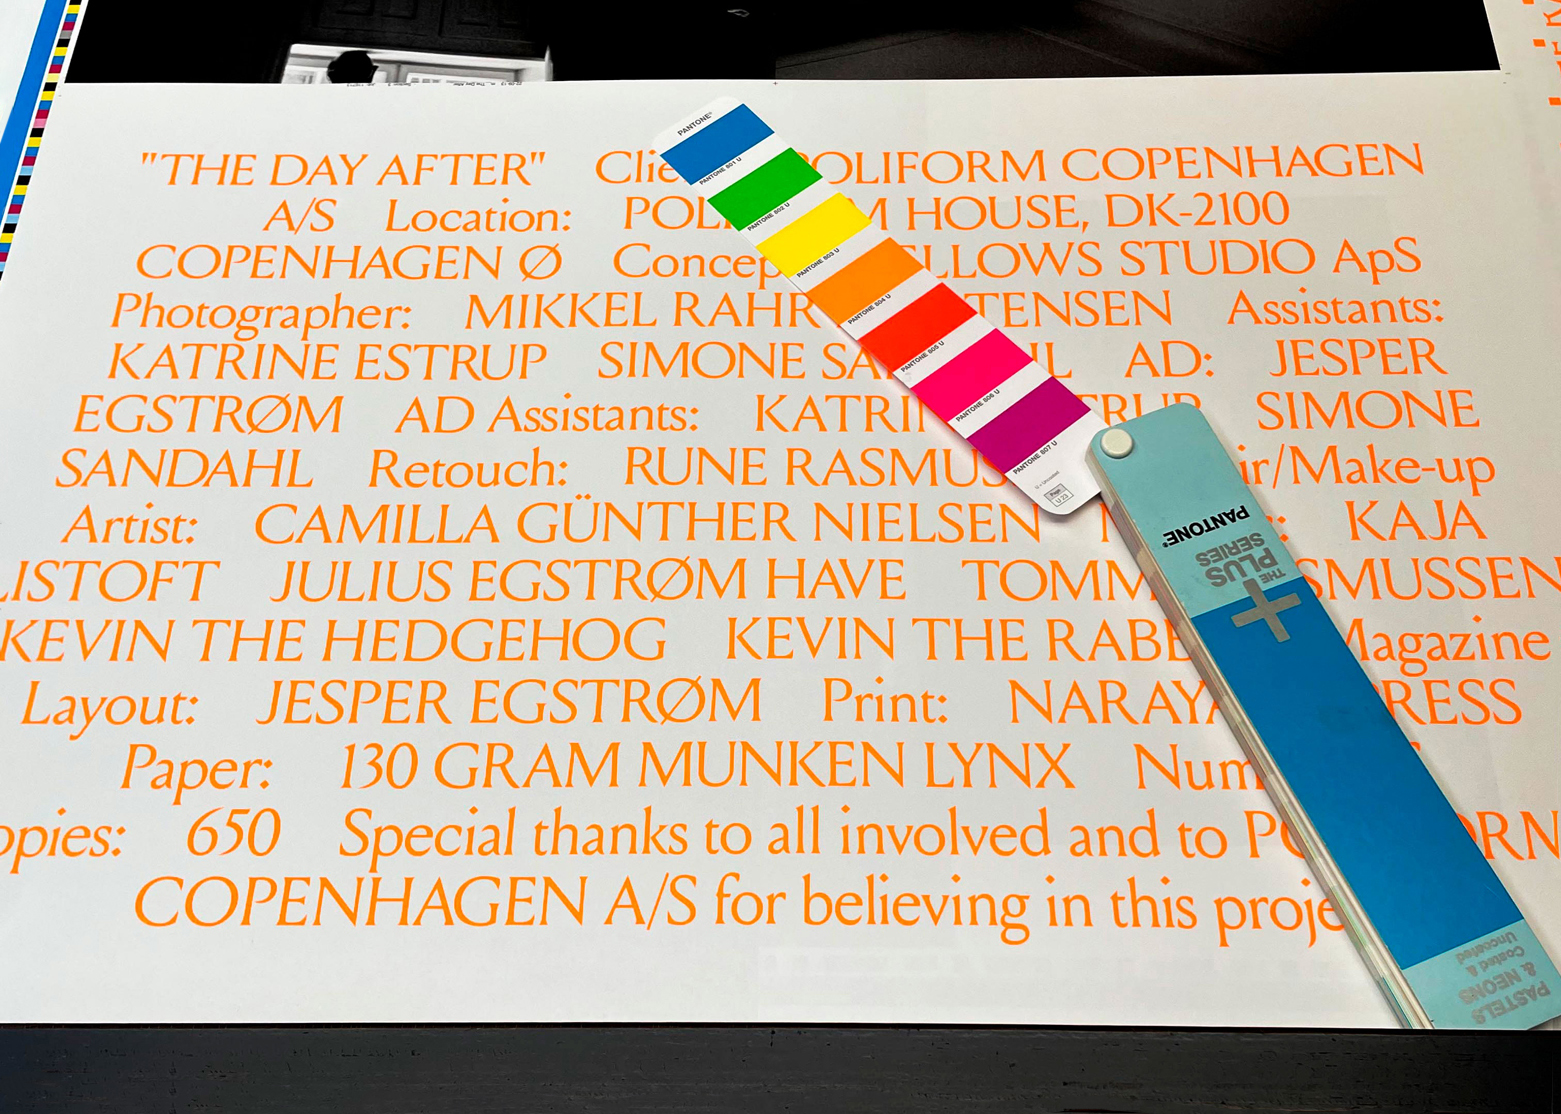 "THE DAY AFTER" Clie OLIFORM COPENHAGEN
A/S Location: POLI M HOUSE, DK-2100
COPENHAGEN Ø Concep LLOWS STUDIO ApS
Photographer: MIKKEL RAHR TENSEN Assistants:
KATRINE ESTRUP SIMONE SA L AD: JESPER
EGSTRØM AD Assistants: KATRI TRUP SIMONE
SANDAHL Retouch: RUNE RASMUS ir/Make-up
Artist: CAMILLA GÜNTHER NIELSEN : KAJA
LISTOFT JULIUS EGSTRØM HAVE TOMM SMUSSEN
KEVIN THE HEDGEHOG KEVIN THE RABB Magazine
Layout: JESPER EGSTRØM Print: NARAYA RESS
Paper: 130 GRAM MUNKEN LYNX Num
opies: 650 Special thanks to all involved and to PO ORN
COPENHAGEN A/S for believing in this proje
PANTONE
PANTONE 801 U
PANTONE 802 U
PANTONE 803 U
PANTONE 804 U
PANTONE 805 U
PANTONE 806 U
PANTONE 807 U
U = Uncoated
Page
U 23
PANTONE
THE PLUS
SERIES
PASTELS
& NEONS
Coated &
Uncoated